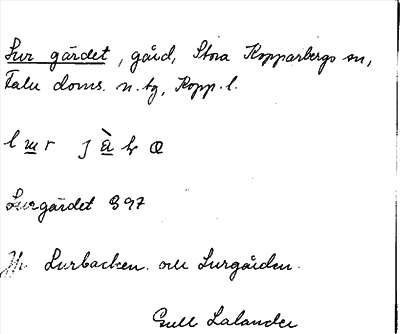 Lurgärdet, gård, Stora Kopparbergs sn,
Falu doms. n. tg, Kopp. l.
Lurgärdet 397
Jfr Lurbacken och Lurgården.
Gull Lalander